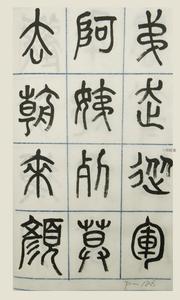 弟走從軍
阿姨死暮
去朝來顏